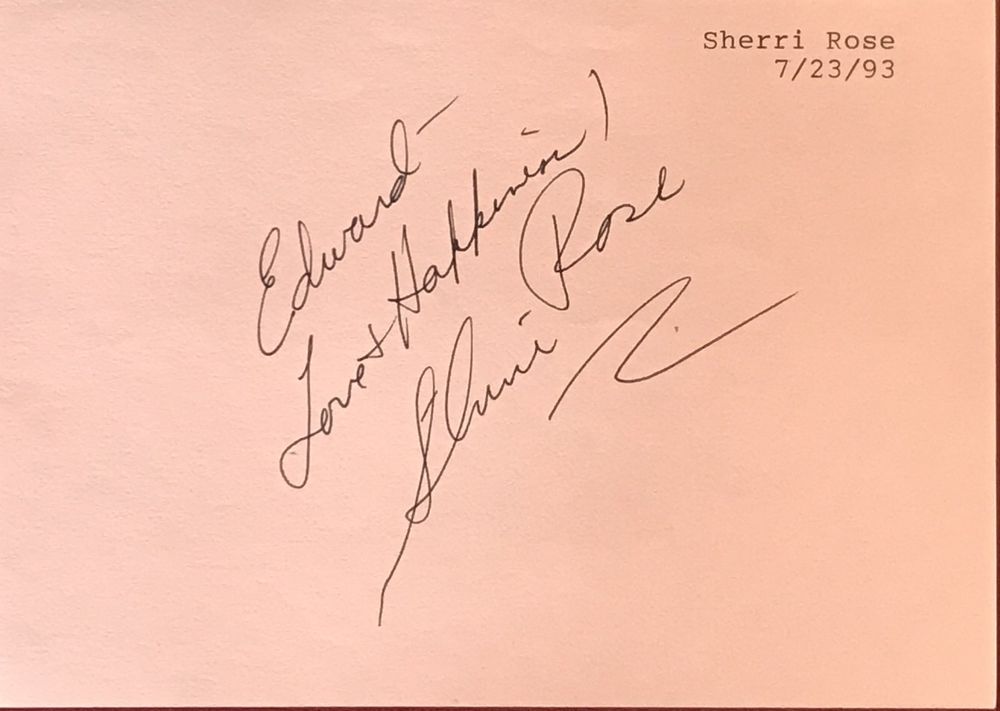 Sherri Rose
7/23/93
Edward-
Love + Happiness!
Sherri Rose